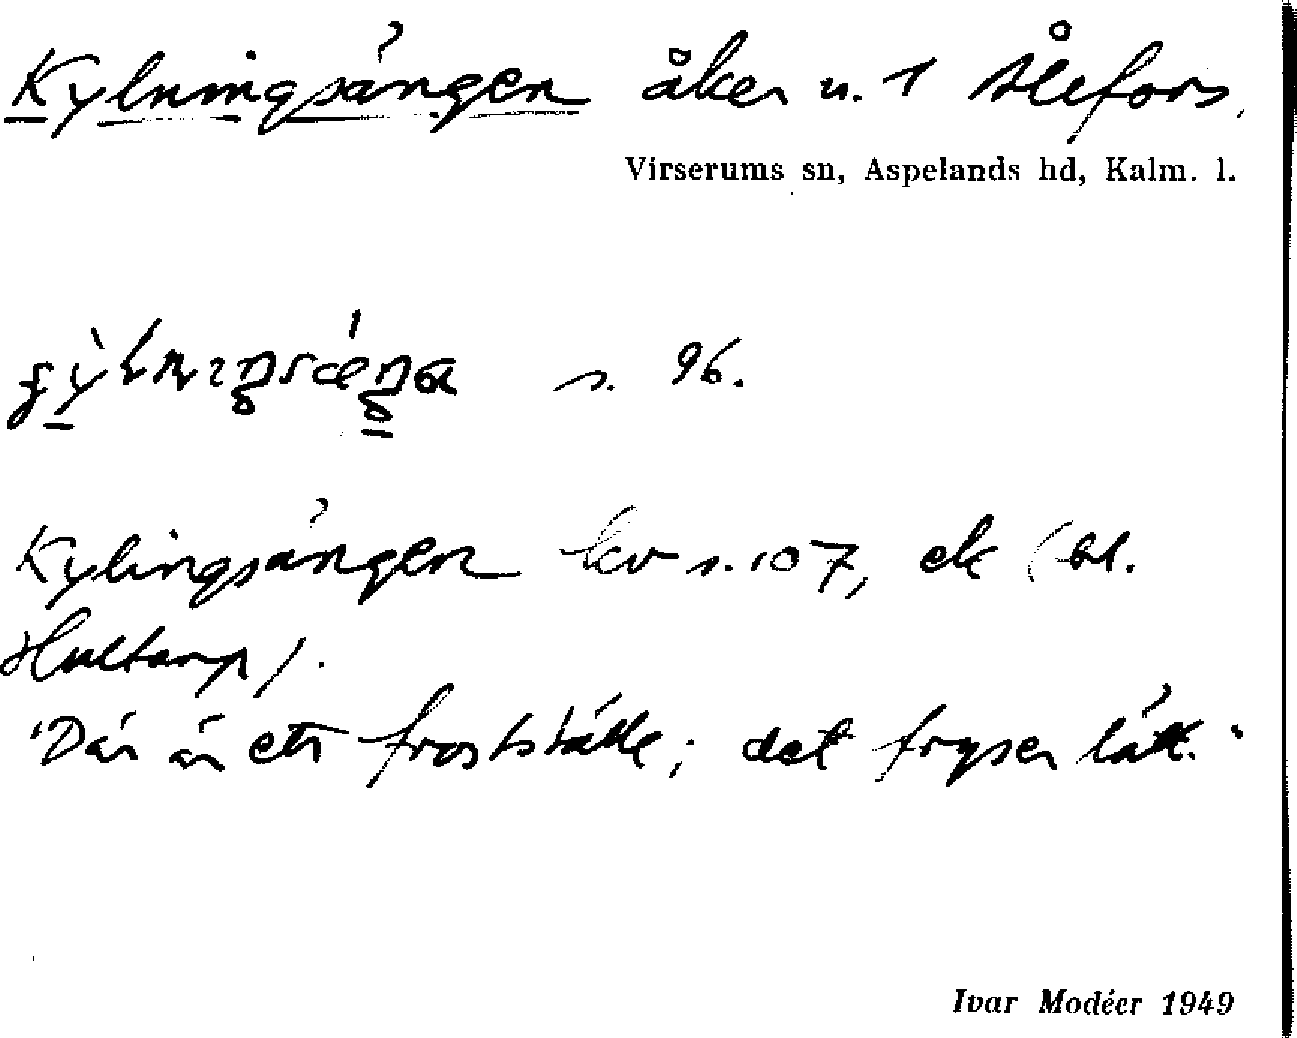 Kylningsängen åker u. 1 Ålefors,
Virserums sn, Aspelands hd, Kalm. l.
s. 96.
Kylingsängen kv s. 107, ek (bl.
Hultarp).
"Där är ett frostställe; det fryser lätt."
Ivar Modéer 1949